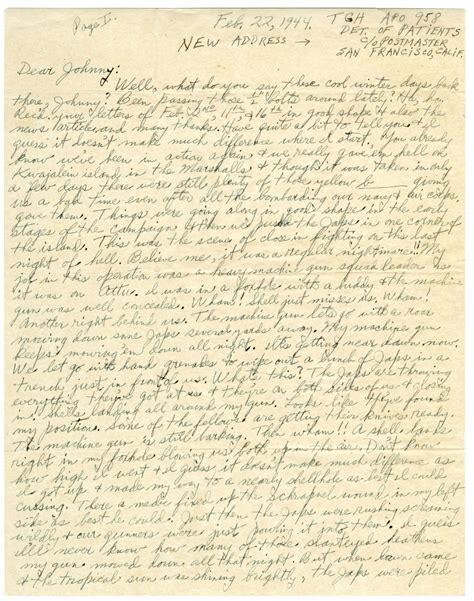 Page I.
Feb. 22, 1944.
TGH APO 958
DET. OF PATIENTS
NEW ADDRESS → C/O POSTMASTER
SAN FRANCISCO, CALIF.
Dear Johnny:
Well, what do you say these cool winter days back
there, Johnny? Been passing those bolts around lately? Ha, ha.
Rec'd your letters of Feb. 2nd, 11th & 16th in good shape & also the
news article and many thanks. Have quite a bit to tell you & I
guess it doesn't make much difference where I start. You already
know we've been in action again & we really gave 'em hell on
Kwajalein island in the Marshalls & though it was taken in only
a few days there were still plenty of those yellow b— giving
us a bad time even after all the bombarding our navy & air corps
gave them. Things were going along in good shape in the early
stages of the campaign & then we push the Japs in one corner of
the island. This was the scene of close in fighting on this last
night of hell. Believe me, it was a regular nightmare!! My
job in this operation was a heavy machine gun squad leader as
it was on Attu. I was in a foxhole with a buddy & the machine
gun was well concealed. Wham! Shell just misses us. Wham!
Another right behind us. The machine gun lets go with a roar
mowing down some Japs several yards away. My machine gun
keeps mowing 'em down all night. It's getting near dawn now.
We let go with hand grenades to wipe out a bunch of Japs in a
trench just in front of us. What's this? The Japs are throwing
everything they've got at us & they're on both sides of us & closing
in. Shells landing all around my gun. Looks like they've found
my position. Some of the fellows are getting their knives ready.
The machine gun is still barking. Then wham!! A shell lands
right in my foxhole blowing us both up in the air. Don't know
how high I went & I guess it doesn't make much difference as
I got up & made my way to a nearby shellhole as best I could
cussing. There a medic fixed up the schrapnel wound in my left
side as best he could. Just then the Japs were rushing screaming
wildly & our gunners were just pouring it into them. I guess
I'll never know how many of those slanteyed heathens
my gun mowed down all that night. But when dawn came
& the tropical sun was shining brightly, the Japs were piled